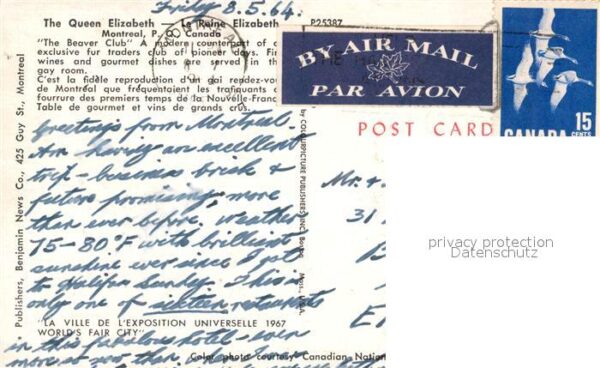 Friday 8.5.64.
The Queen Elizabeth — Le Reine Elizabeth
Montreal, P. Q. Canada
P25387
"The Beaver Club" A modern counterpart of
exclusive fur traders club of pioneer days. Fin
wines and gourmet dishes are served in th
gay room.
C'est la fidèle reproduction d'un gai rendez-vou
de Montréal que fréquentaient les trafiquants
fourrure des premiers temps de la Nouvelle-Franc
Table de gourmet et vins de grands crus.
BY AIR MAIL
PAR AVION
15
CENTS
CANADA
POST CARD
Greetings from Montreal.
Am having an excellent
trip - business brisk &
future promising, more
than ever before. Weather
75-80°F with brilliant
sunshine ever since I got
to Halifax Sunday. This is
only one of sixteen restaurants
"LA VILLE DE L'EXPOSITION UNIVERSELLE 1967
WORLD'S FAIR CITY"
in this fabulous hotel - even
more so now than when I
Color photo courtesy Canadian Nation
Publishers, Benjamin News Co., 425 Guy St., Montreal
by COLOURPICTURE PUBLISHERS, INC. Boston Mass., U.S.A.
Mr. &
31
B
E
privacy protection
Datenschutz